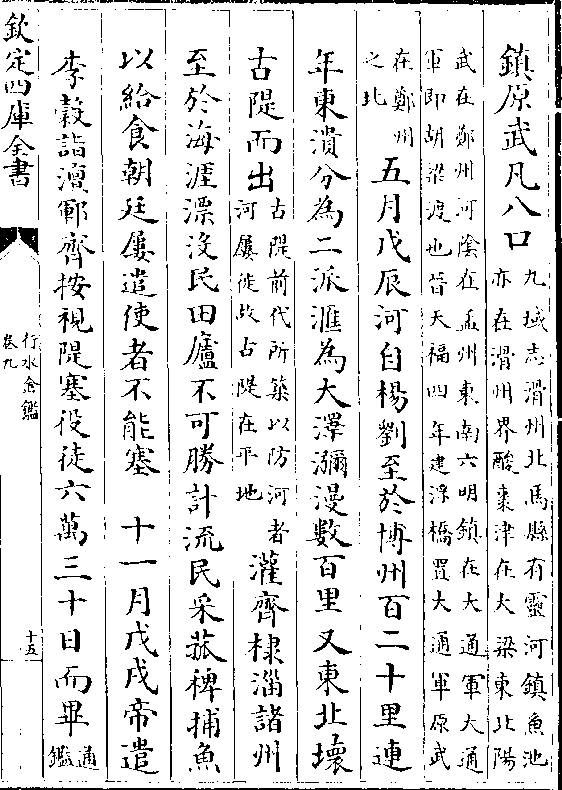 鎮原武凡八口九域志滑州北馬縣有靈河鎮魚池亦在滑州界酸棗津在大梁東北陽
武在鄭州河陰在孟州東南六明鎮在大通軍大通軍即胡梁渡也晉天福四年建浮橋置大通軍原武
在鄭州之北五月戊辰河自楊劉至於博州百二十里連
年東潰分為二派滙為大澤瀰漫數百里又東北壞
古隄而出古隄前代所築以防河者河屢徙故古隄在平地灌齊棣淄諸州
至於海涯漂沒民田廬不可勝計流民采菰稗捕魚
以給食朝廷屢遣使者不能塞 十一月戊戌帝遣
李穀詣澶鄆齊按視隄塞役徒六萬三十日而畢通鑑
欽定四庫全書
行水金鑑
卷九
十五